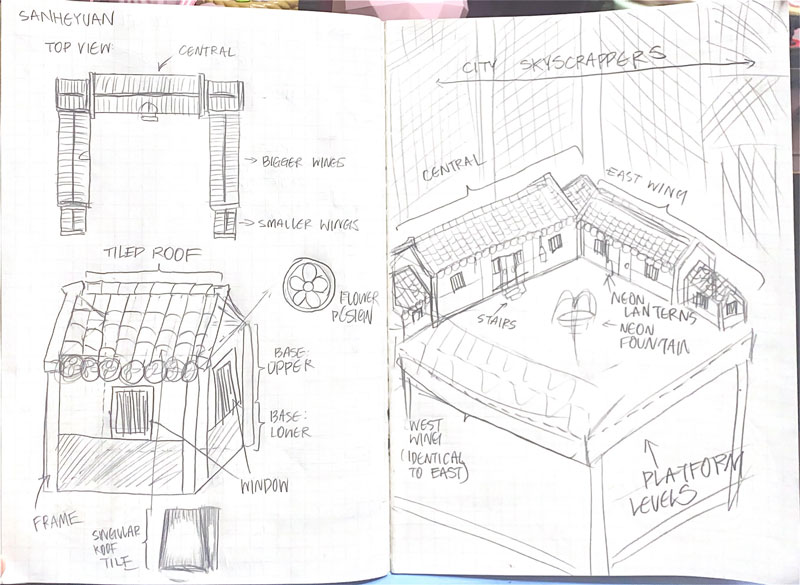 SANHEYUAN
TOP VIEW:
CENTRAL
BIGGER WINGS
SMALLER WINGS
TILED ROOF
FLOWER
DSIGN
BASE:
UPPER
BASE:
LOWER
WINDOW
FRAME
SINGULAR
ROOF
TILE
CITY SKYSCRAPPERS
CENTRAL
EAST WING
STAIRS
NEON
LANTERNS
NEON
FOUNTAIN
WEST
WING
(IDENTICAL
TO EAST)
PLATFORM
LEVELS